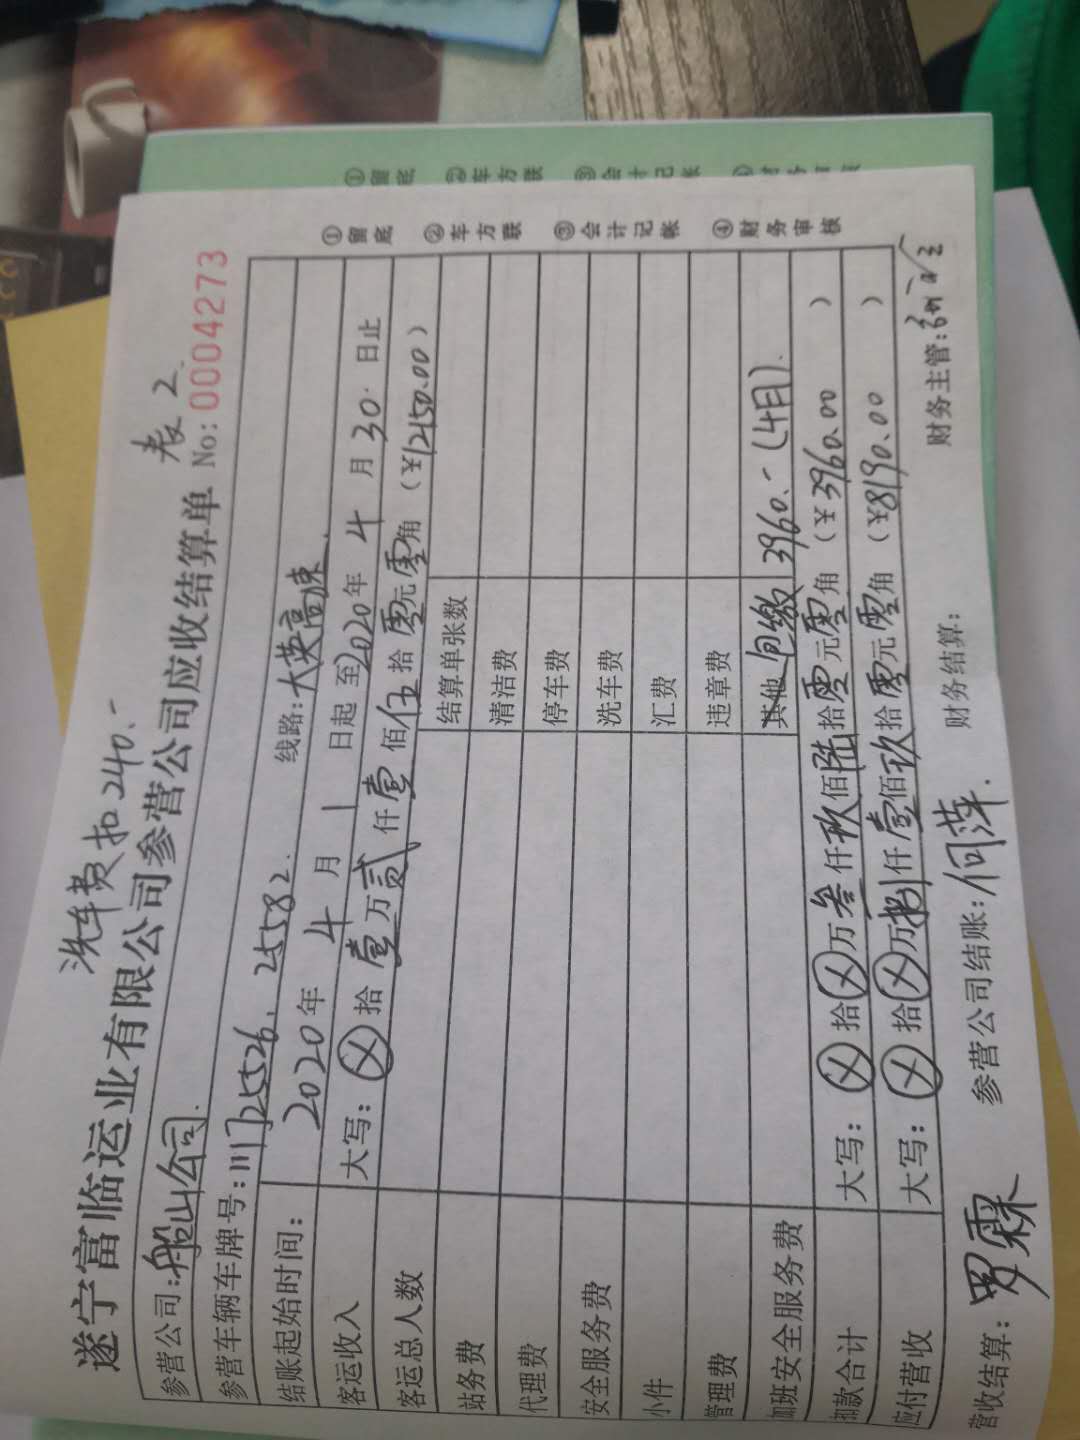 洗车费扣240.-
表2.
遂宁富临运业有限公司参营公司应收结算单 No: 0004273
参营公司: 船山公司.
参营车辆车牌号: 川J25526、25582. 线路: 大英高速.
结账起始时间: 2020年 4 月 1 日起 至2020年 4 月 30 日止
客运收入 大写: ⊗ 拾 壹 万 贰 仟 壹 佰 伍 拾 零 元 零 角 (¥12150.00)
客运总人数 结算单张数
站务费 清洁费
代理费 停车费
安全服务费 洗车费
小件 汇费
管理费 违章费
加班安全服务费 其他 包缴 3960.- (4月).
扣款合计 大写: ⊗ 拾 ⊗ 万 叁 仟 玖 佰 陆 拾 零 元 零 角 (¥3960.00)
应付营收 大写: ⊗ 拾 ⊗ 万 捌 仟 壹 佰 玖 拾 零 元 零 角 (¥8190.00)
营收结算: 罗霖 参营公司结账: 何萍. 财务结算: 财务主管:
①留底 ②车方联 ③会计记帐 ④财务审核
①留底 ②车方联 ③会计记帐